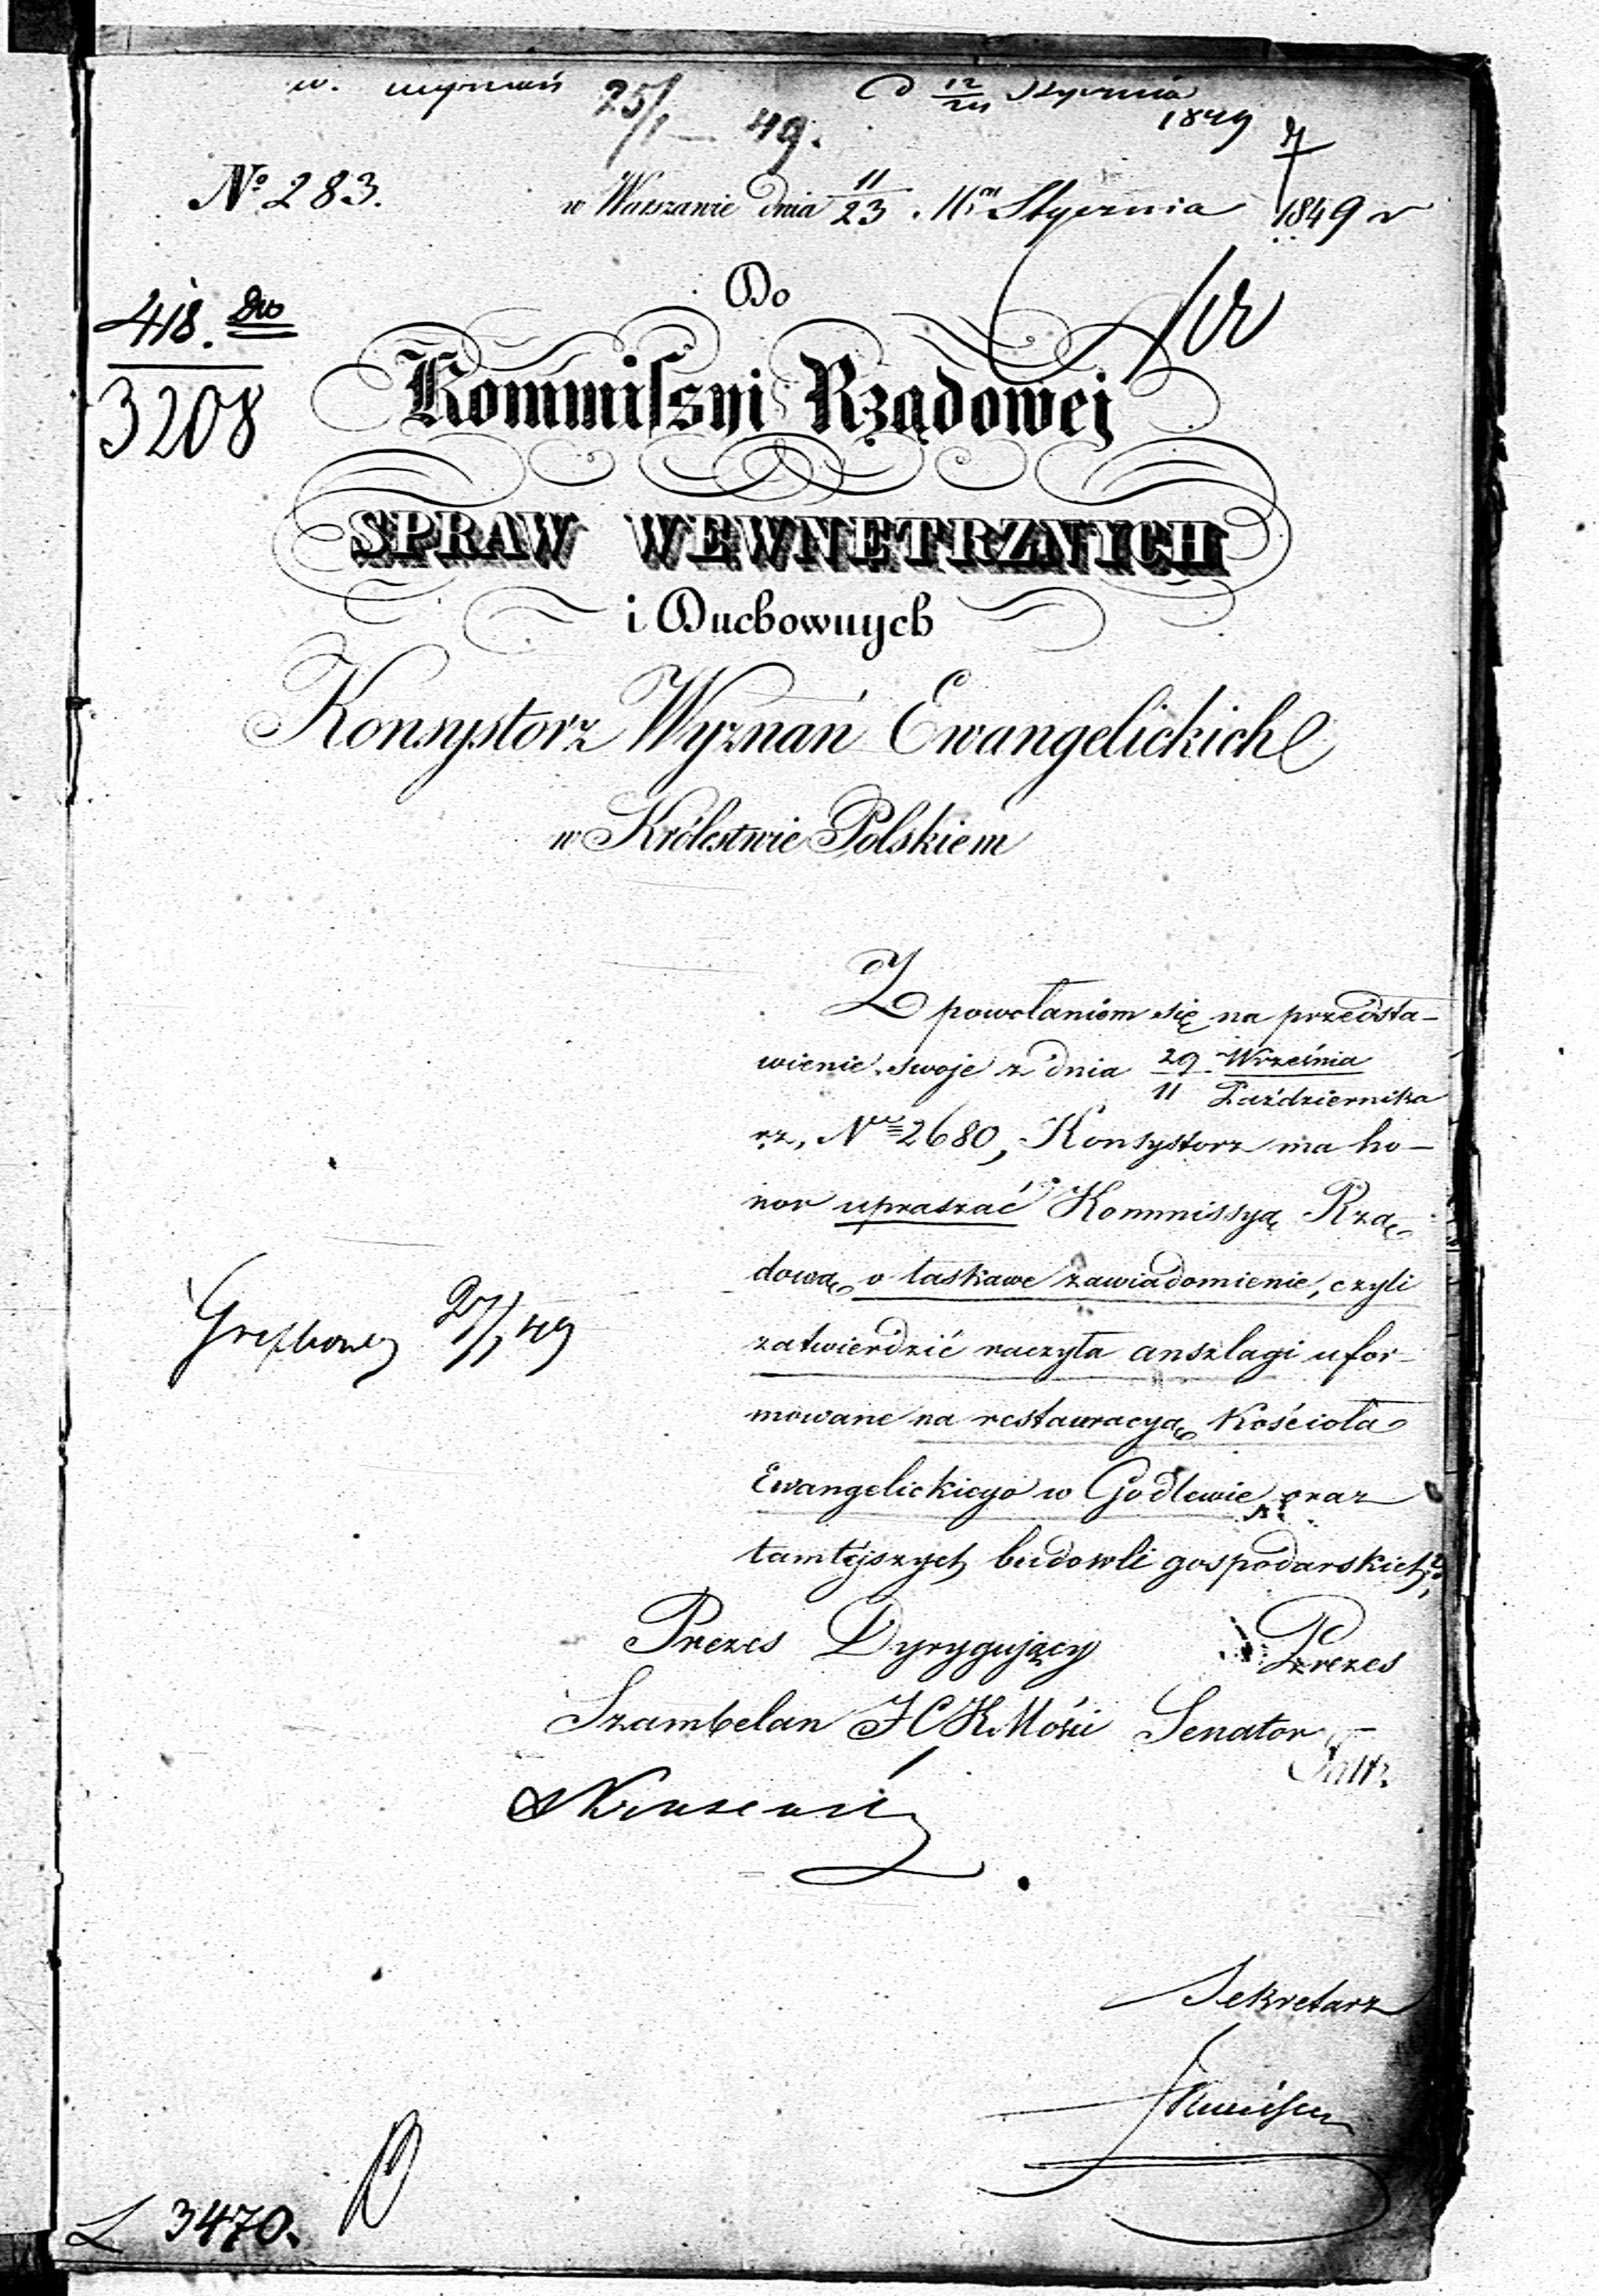 w. wyznań 25/1 – 49. D 12/24 Stycznia
1849
No 283. w Warszawie dnia 11/23 Mca Stycznia 1849 r
418. Dw
3208
Do
Kommissyi Rządowej
SPRAW WEWNĘTRZNYCH
i Duchownych
Konsystorz Wyznań Ewangelickich
w Królestwie Polskiem
Z powołaniem się na przedsta-
wienie swoje z dnia 29 Września
11 Października
rz, No 2680, Konsystorz ma ho-
nor upraszać Kommissyą Rzą-
dową o łaskawe zawiadomienie, czyli
zatwierdzić raczyła anszlagi ufor-
mowane na restauracyą Kościoła
Ewangelickiego w Godlewie oraz
tamtejszych budowli gospodarskich,
27/1 49
Prezes Dyrygujący Prezes
Szambelan JCKMości Senator
Sekretarz
L 3470.